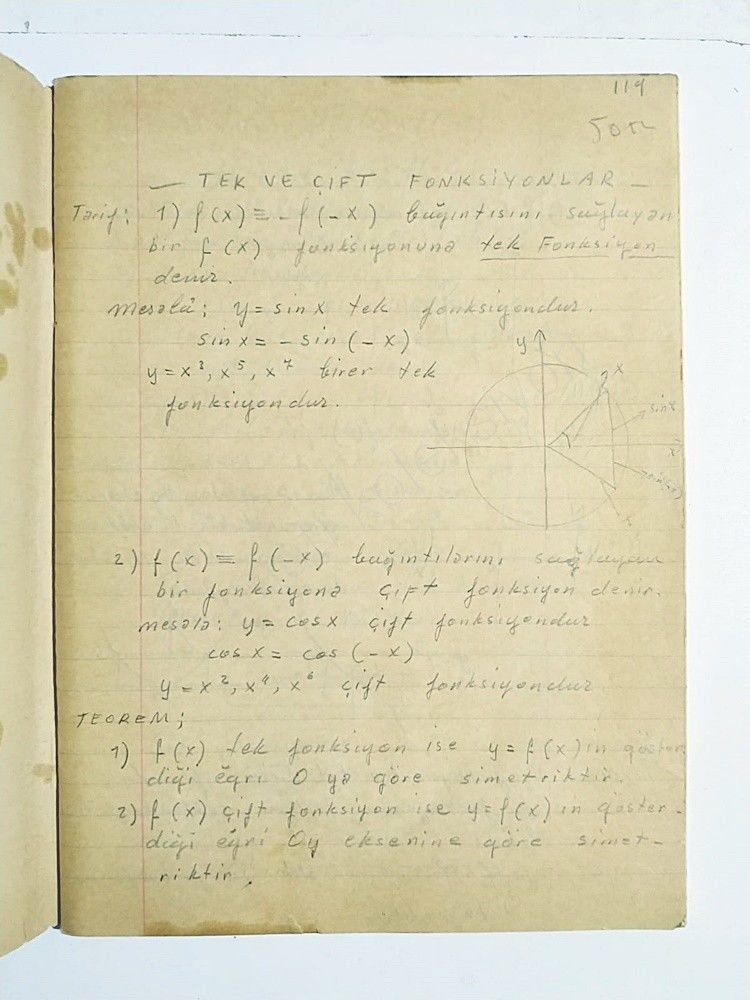 119
50TL
— TEK VE ÇİFT FONKSİYONLAR —
Tarif: 1) f(x) ≡ - f(-x) bağıntısını sağlayan
bir f(x) fonksiyonuna tek Fonksiyon
denir.
Meselâ: y = sin x tek fonksiyondur.
sin x = - sin (-x)
y = x³, x⁵, x⁷ birer tek
fonksiyondur.
y
x
sin x
x
sin(-x)
-x
2) f(x) ≡ f(-x) bağıntılarını sağlayan
bir fonksiyona çift fonksiyon denir.
mesela: y = cos x çift fonksiyondur
cos x = cos (-x)
y = x², x⁴, x⁶ çift fonksiyondur
TEOREM;
1) f(x) tek fonksiyon ise y = f(x) in göster
diği eğri O ya göre simetriktir.
2) f(x) çift fonksiyon ise y = f(x) in göster-
diği eğri Oy eksenine göre simet-
riktir.